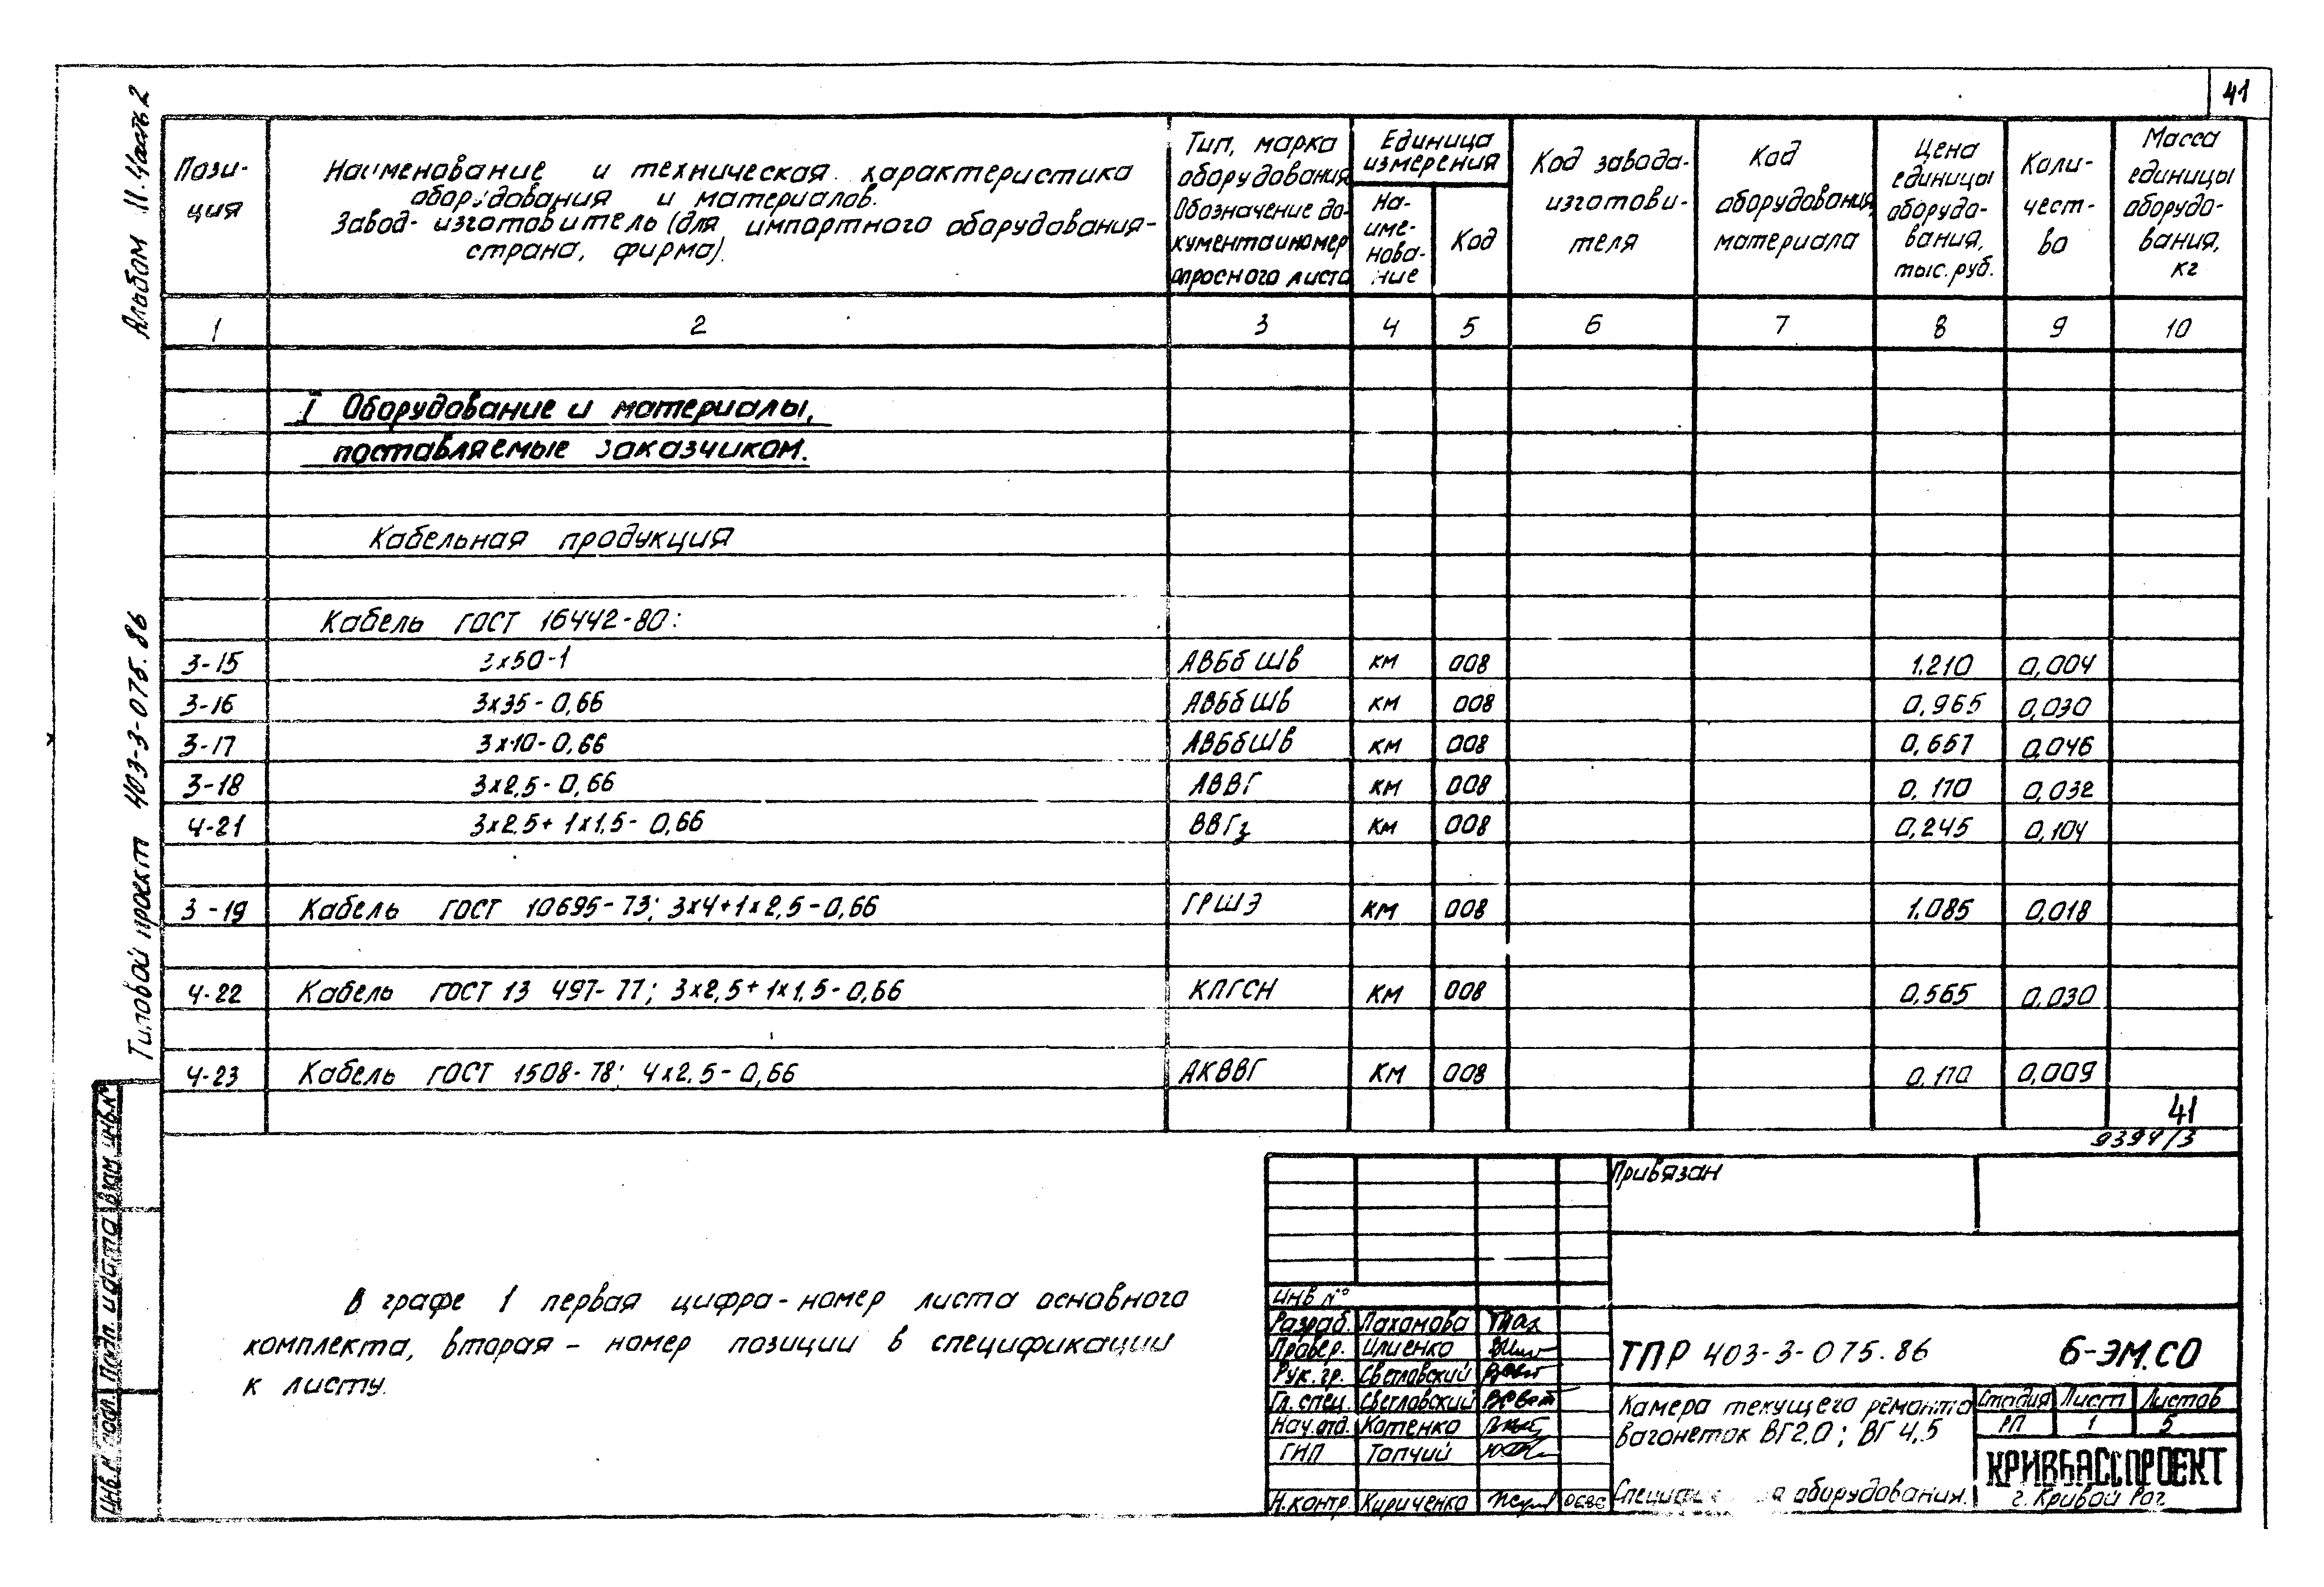 41
Альбом II. Часть 2
Типовой проект 403-3-075.86
Пози-
ция
Наименование и техническая характеристика
оборудования и материалов.
Завод-изготовитель (для импортного оборудования-
страна, фирма).
Тип, марка
оборудования
Обозначение до-
кумента и номер
опросного листа
Единица
измерения
На-
име-
нова-
ние
Код
Код завода-
изготови-
теля
Код
оборудования,
материала
Цена
единицы
оборудо-
вания,
тыс. руб.
Коли-
чест-
во
Масса
единицы
оборудо-
вания,
кг
1 2 3 4 5 6 7 8 9 10
I Оборудование и материалы,
поставляемые заказчиком.
Кабельная продукция
Кабель ГОСТ 16442-80:
3-15 3х50-1 АВБбШв км 008 1.210 0,004
3-16 3х35-0,66 АВБбШв км 008 0,965 0,030
3-17 3х10-0,66 АВБбШв км 008 0,657 0,046
3-18 3х2,5-0,66 АВВГ км 008 0,170 0,032
4-21 3х2,5+1х1,5-0,66 ВВГз км 008 0,245 0,104
3-19 Кабель ГОСТ 10695-73; 3х4+1х2,5-0,66 ГРШЭ км 008 1.085 0,018
4-22 Кабель ГОСТ 13 497-77; 3х2,5+1х1,5-0,66 КПГСН км 008 0,565 0,030
4-23 Кабель ГОСТ 1508-78; 4х2,5-0,66 АКВВГ км 008 0,170 0,009
41
9394/3
В графе 1 первая цифра-номер листа основного
комплекта, вторая - номер позиции в спецификации
к листу.
Привязан
Инв №
Разраб. Пахомова
Провер. Илиенко
Рук. гр. Светловский
Гл. спец. Светловский
Нач. отд. Котенко
ГИП Топчий
Н. контр. Кириченко
ТПР 403-3-075.86 6-ЭМ.СО
Камера текущего ремонта
вагонеток ВГ2,0; ВГ 4,5
оборудования.
Стадия Лист Листов
РП 1 5
КРИВБАССПРОЕКТ
г. Кривой Рог
Инв. № подл. Подп. и дата Взам. инв. №